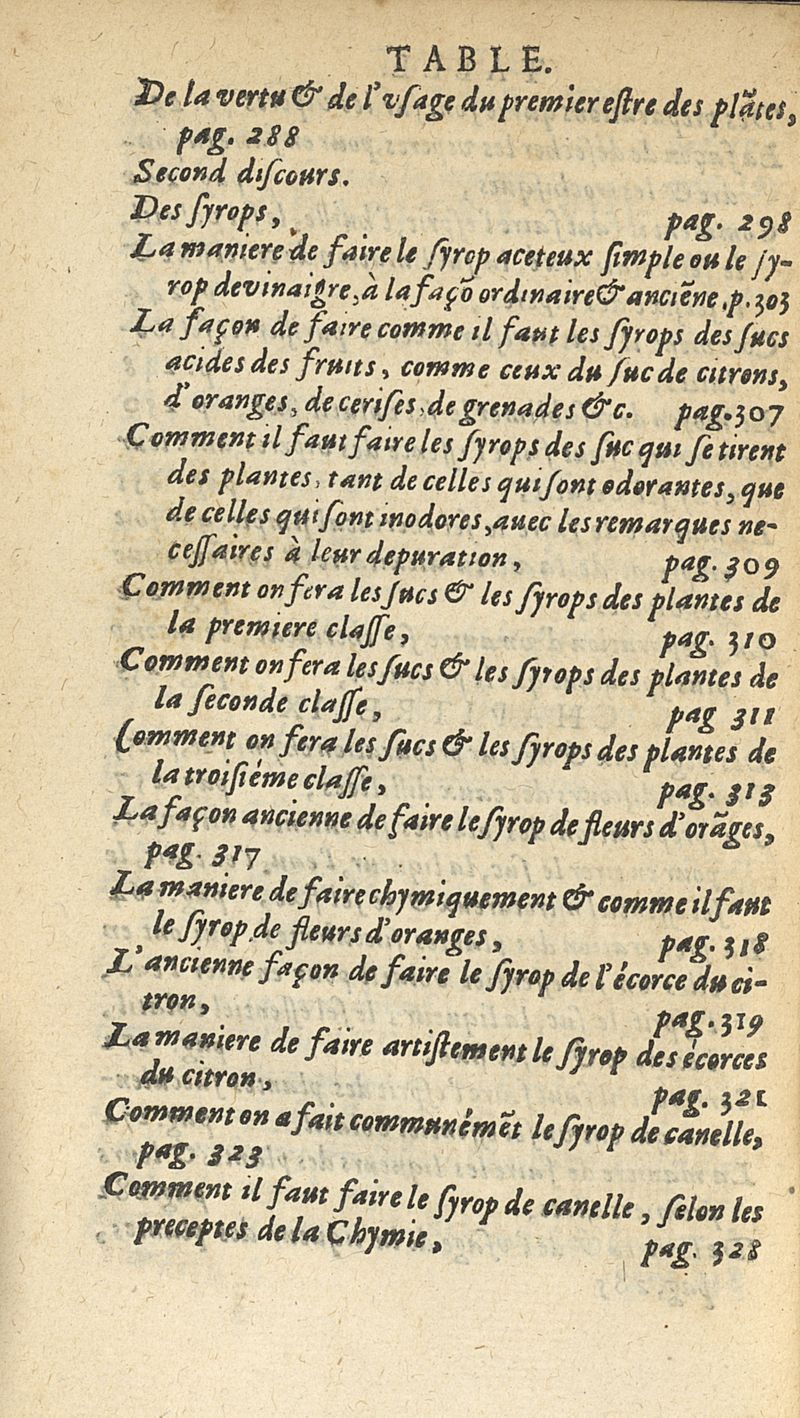 TABLE.
De la vertu & de l'vſage du premier eſtre des plãtes,
pag. 288
Second diſcours.
Des ſyrops, pag. 298
La maniere de faire le ſyrop aceteux ſimple ou le ſy-
rop de vinaigre, à la façõ ordinaire & anciẽne, p. 303
La façon de faire comme il faut les ſyrops des ſucs
acides des fruits, comme ceux du ſuc de citrons,
d'oranges, de ceriſes, de grenades &c. pag. 307
Comment il faut faire les ſyrops des ſuc qui ſe tirent
des plantes, tant de celles qui ſont odorantes, que
de celles qui ſont inodores, auec les remarques ne-
ceſſaires à leur depuration, pag. 309
Comment on fera les ſucs & les ſyrops des plantes de
la premiere claſſe, pag. 310
Comment on fera les ſucs & les ſyrops des plantes de
la ſeconde claſſe, pag 311
Comment on fera les ſucs & les ſyrops des plantes de
la troiſiéme claſſe, pag. 313
La façon ancienne de faire le ſyrop de fleurs d'orãges,
pag. 317
La maniere de faire chymiquement & comme il faut
le ſyrop de fleurs d'oranges, pag. 318
L'ancienne façon de faire le ſyrop de l'écorce du ci-
tron, pag. 319
La maniere de faire artiſtement le ſyrop des écorces
du citron, pag. 321
Comment on a fait communémẽt le ſyrop de canelle,
pag. 323
Comment il faut faire le ſyrop de canelle, ſelon les
preceptes de la Chymie, pag. 328